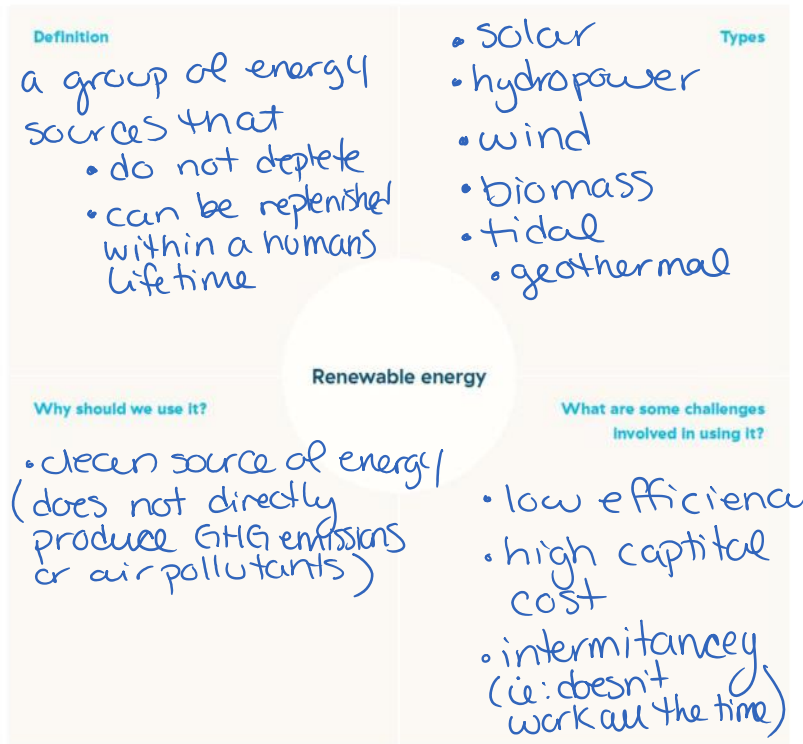 Definition
a group of energy
sources that
• do not deplete
• can be replenished
within a humans
lifetime
Types
• solar
• hydropower
• wind
• biomass
• tidal
• geothermal
Renewable energy
Why should we use it?
• clean source of energy
(does not directly
produce GHG emissions
or air pollutants)
What are some challenges
involved in using it?
• low efficienc
• high captital
cost
• intermitancey
(ie: doesn't
work all the time)